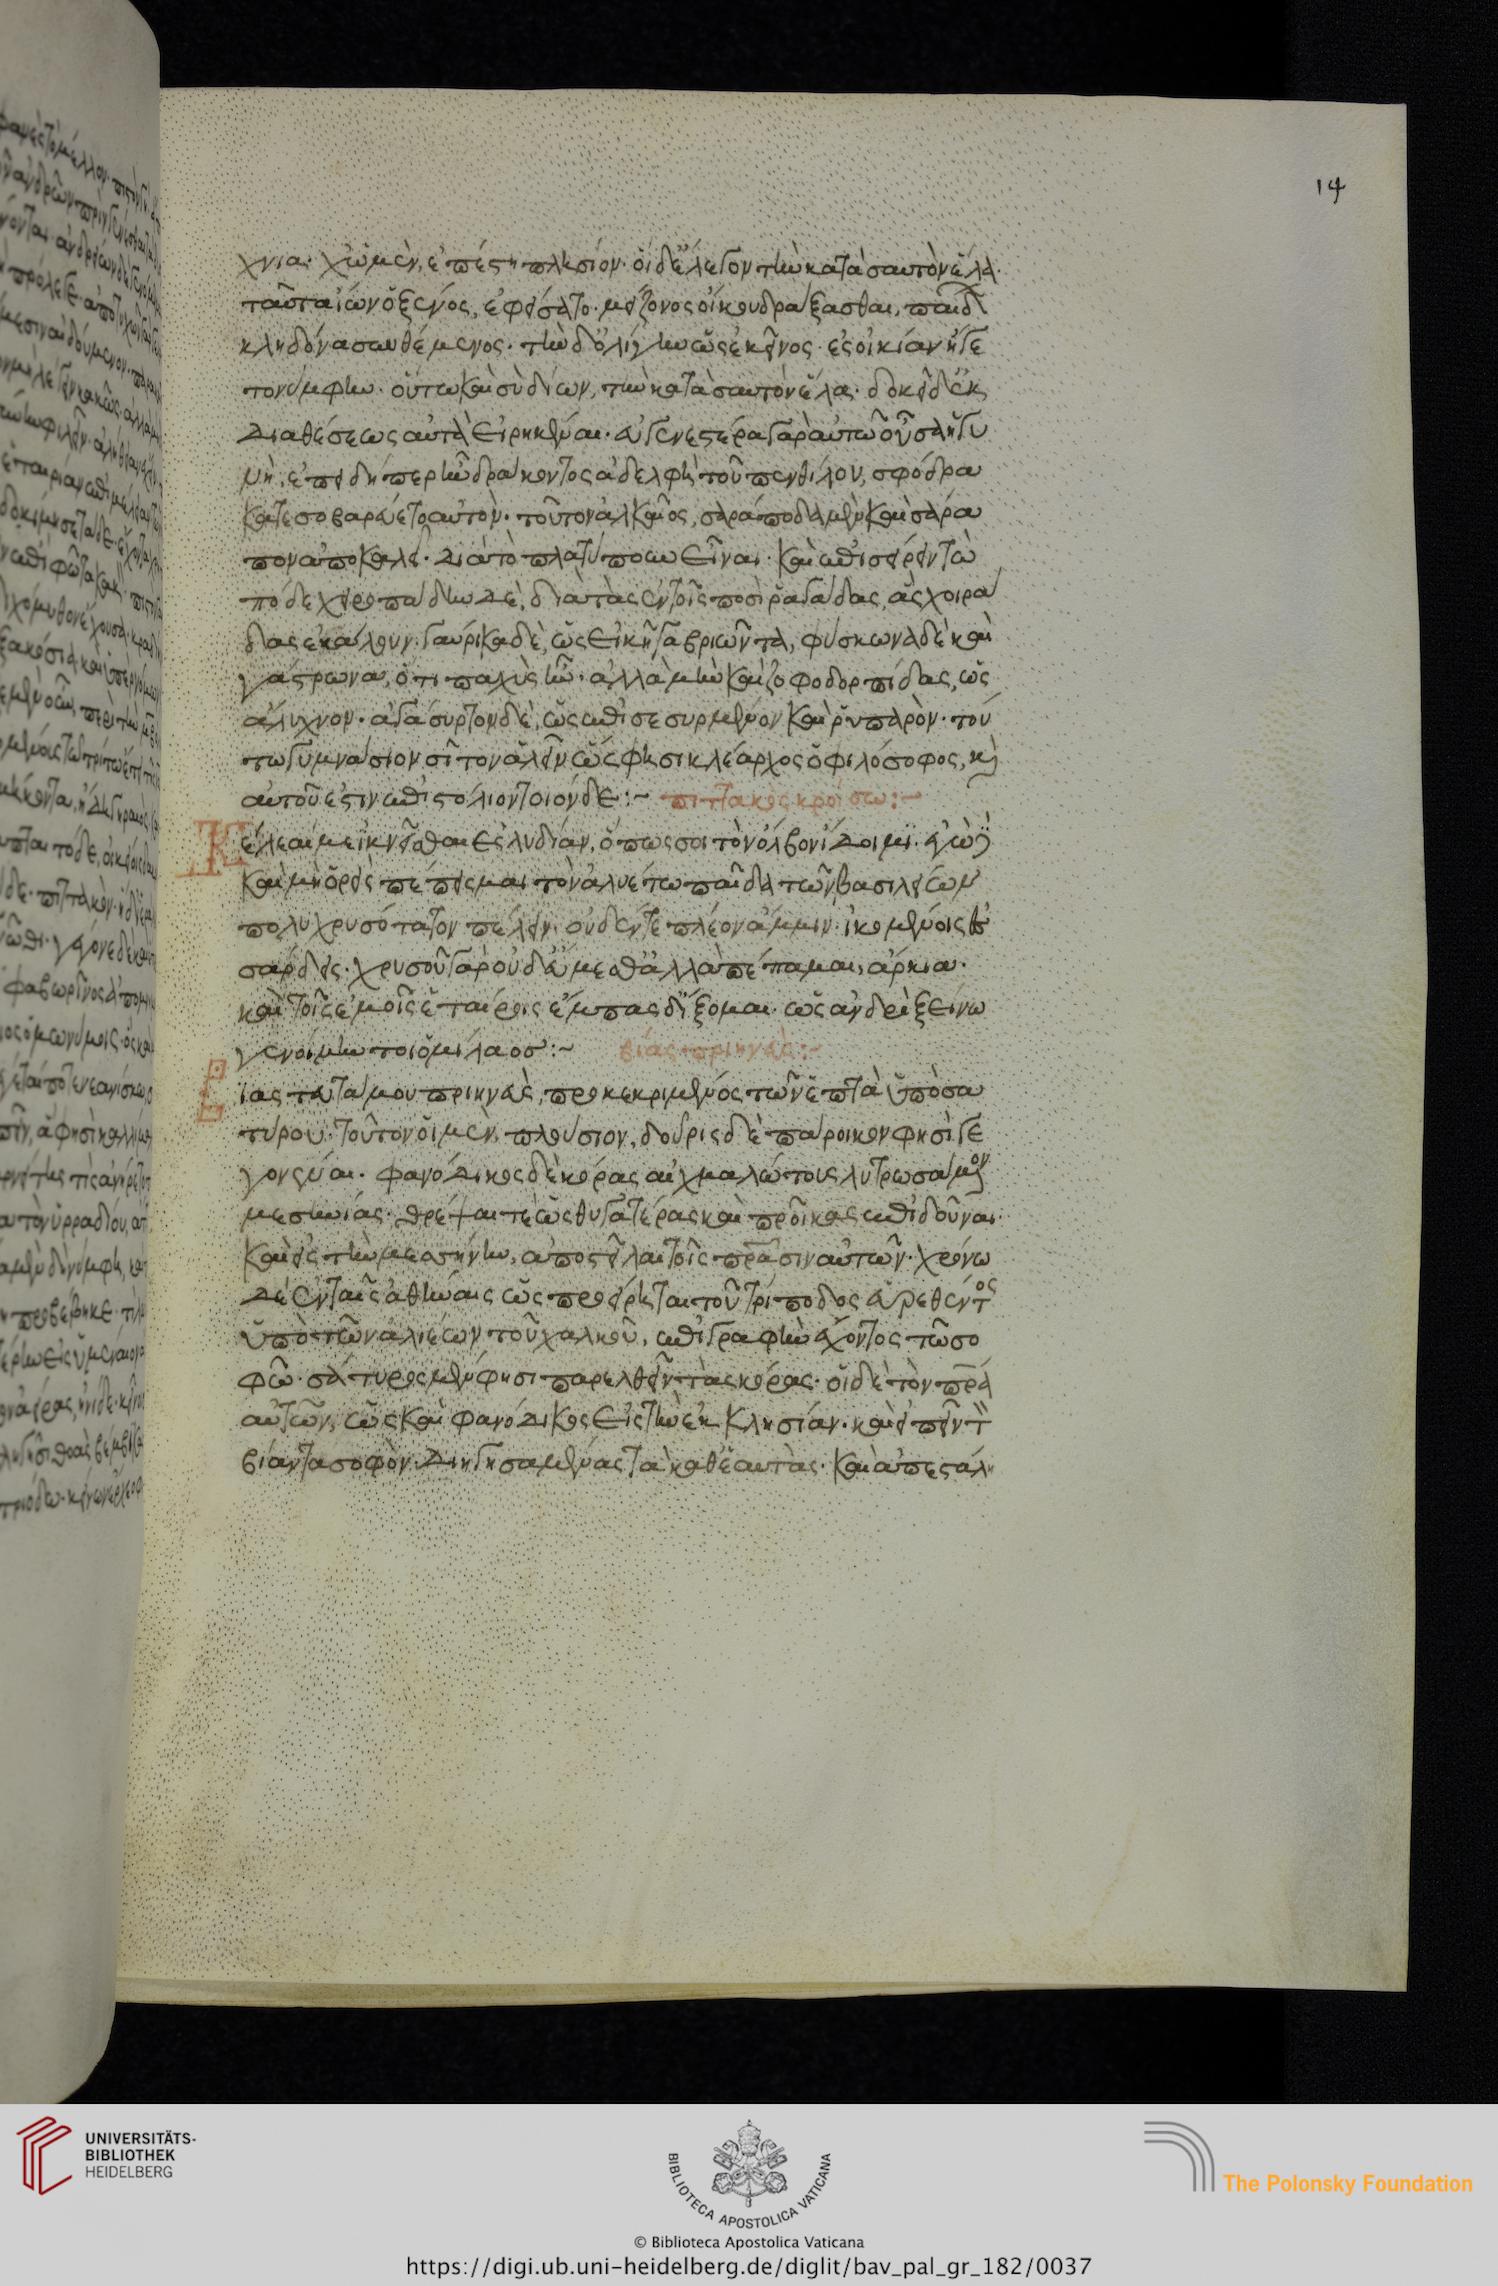 14
χνια· χὠ μὲν, ἐπέστη πλησίον· οἱ δ' ἔλεγον τὴν κατὰ σαυτὸν ἔλα·
ταῦτα ἀΐων ὁ ξεῖνος, ἐφείσατο· μείζονος οἴκου δράξασθαι, παίδ
κληδόνα συνθέμενος· τὴν δ' ὀλίγην ὡς ἐκεῖνος ἐς οἰκίαν ἤγε
το νύμφην· οὕτω καὶ σὺ δίων, τὴν κατὰ σαυτὸν ἔλα· δοκεῖ δ' ἐκ
διαθέσεως αὐτὰ εἰρηκέναι· εὐγενεστέρα γὰρ αὐτῶ οὖσα ἡ γυ
νὴ, ἐπειδήπερ ἦν δράκοντος ἀδελφὴ τοῦ πενθίλου, σφόδρα
κατεσοβαρεύετο αὐτὸν· τοῦτον ἀλκαῖος, σαράποδα μὲν καὶ σάρα
πον ἀποκαλεῖ· διὰ τὸ πλατύπουν εἶναι· καὶ ἐπισείρειν τὼ
πόδε χειροπόδην δὲ, διὰ τὰς ἐν τοῖς ποσὶ ῥαγάδας, ἃς χοιρά
δας ἐκάλουν· γαύρικα δὲ, ὡς εἰκῆ γαυριῶντα, φύσκωνα δὲ καὶ
γάστρωνα, ὅτι παχὺς ἦν· ἀλλὰ μὴν καὶ ζοφοδορπίδας, ὡς
ἄλυχνον· ἀγάσυρτον δὲ, ὡς ἐπισεσυρμένον καὶ ῥυπαρὸν· τού
τω γυμνάσιον σῖτον ἀλεῖν ὥς φησι κλέαρχος ὁ φιλόσοφος, καὶ
αὐτοῦ ἐστιν ἐπιστόλιον τοιόνδε:~ πιττακὸς κροίσω:~
Κέλεαί με ἱκνεῖσθαι ἐς λυδίαν, ὅπως σοι τὸν ὄλβον ἴδοιμι· ἐγὼ δὲ
καὶ μὴ ὁρεὶς πέπεισμαι τὸν ἀλυέττω παῖδα τῶν βασιλείων
πολυχρυσότατον πέλειν· οὐδέν τε πλέον ἄμμιν· ἱκομένοις ἐς
σάρδεις· χρυσοῦ γὰρ οὐ δεύμεθ' ἀλλὰ πέπαμαι, ἄρκια·
καὶ τοῖς ἐμοῖς ἑταίροις ἔμπας δ' ἵξομαι· ὡς ἀνδρὶ ξείνω
γενοίμην τοι ὁμίλαος:~ βίας πριηνεὺς:~
Βίας τευτάμου πριηνεὺς, προκεκριμένος τῶν ἑπτὰ ὑπὸ σα
τύρου· τοῦτον οἱ μὲν πλούσιον, δοῦρις δὲ πάροικον φησὶ γε
γονέναι· φανόδικος δὲ κόρας αἰχμαλώτους λυτρωσάμενον
μεσηνίας· θρέψαι τε ὡς θυγατέρας καὶ προῖκας ἐπιδοῦναι·
καὶ εἰς τὴν μεσήνην, ἀποστεῖλαι τοῖς πρᾱσιν αὐτῶν· χρόνω
δὲ ἐν ταῖς ἀθήναις ὡς προείρηται τοῦ τρίποδος εὑρεθέντος
ὑπὸ τῶν ἁλιέων τοῦ χαλκοῦ, ἐπιγραφὴν ἔχοντος τῶ σο
φῶ· σάτυρος μέν φησι παρελθεῖν τὰς κόρας· οἱ δὲ τὸν πρᾱ
αὐτῶν, ὡς καὶ φανόδικος εἰς τὴν ἐκκλησίαν· καὶ εἰπεῖν τὸν
βίαντα σοφὸν· διηγησαμένας τὰ καθ' ἑαυτὰς· καὶ ἀπεστάλη
UNIVERSITÄTS-
BIBLIOTHEK
HEIDELBERG
BIBLIOTECA APOSTOLICA VATICANA
The Polonsky Foundation
© Biblioteca Apostolica Vaticana
https://digi.ub.uni-heidelberg.de/diglit/bav_pal_gr_182/0037